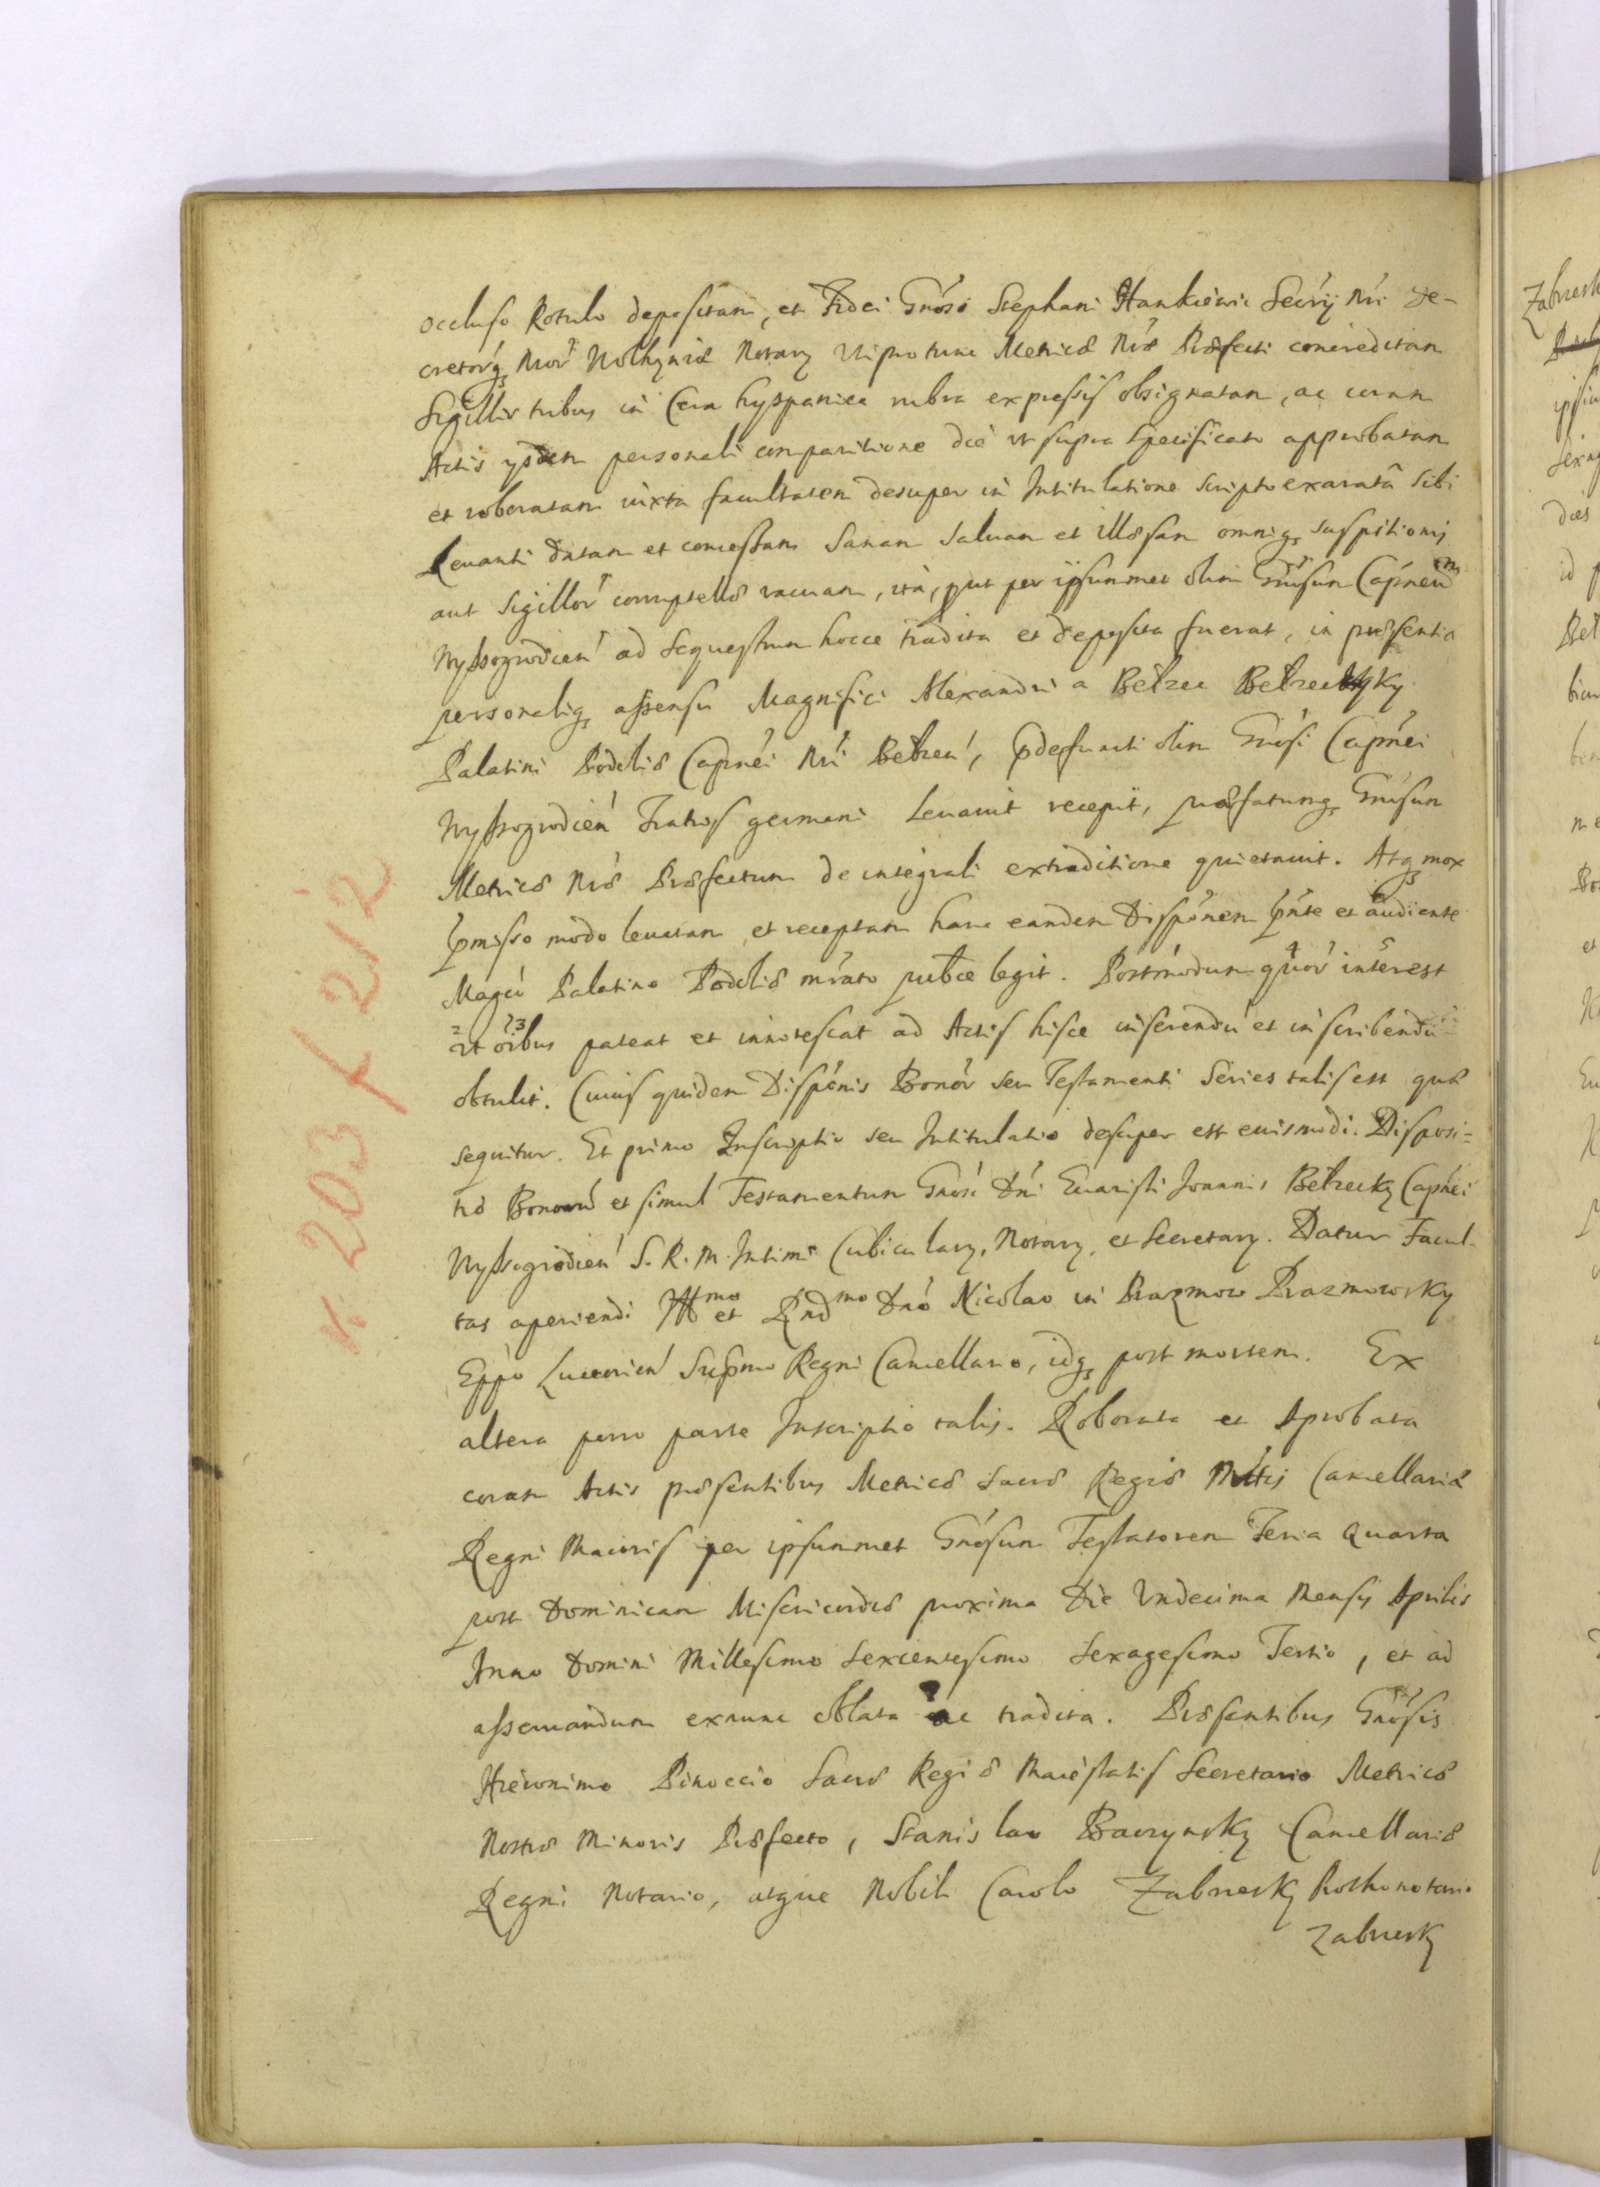 occluso Rotulo depositam, et Fidei Gnōsi Stephani Hankiewic Secrij Nri De-
cretorq Nror Wolhyniæ Notarij utipro tunc Metricæ Nræ Præfecti concreditam
Sigillis tribus in Cera hyspanica rubra expressis obsignatam, ac coram
Actis ysdem personali comparitione die ut supra specificato approbatam
et roboratam iuxta facultatem desuper in Intitulatione scripto exaratâ sibi
Levanti datam et concessam Sanam salvam et illæsam omniq suspitioni
aut sigillor corruptellæ vacuam, ità, prout per ipsummet olim Gnosum Capneum
Wyssogrodien ad sequestrum hocce tradita et deposita fuerat, in præsentia
personaliq assensu Magnifici Alexandri a Bełzec Bełzecky
Palatini Podoliæ Capnei Nri Bełzen, pdefuncti olim Gnosi Capnei
Wyssogrodien Fratris germani Levavit recepit, præfatumq Gnosum
Metricæ Nræ Præfectum de integrali extraditione quietavit. Atq mox
pmisso modo levatam et receptam hanc eandem Disponem pnte et audiente
Magco Palatino Podoliæ mrato publce legit. Postmodum quor 4 interest 5
2 ut 3 oibus pateat et innotescat ad Actis hisce inserendu et inscribendu
obtulit. Cuius quidem Disponis Bonor seu Testamenti Series talis est quæ
sequitur. Et primo Inscriptio seu Intitulatio desuper est euismodi. Disposi=
tio Bonorum et simul Testamentum Gnosi Dni Evaristi Joannis Bełzecky Capnei
Wyssogrodien S. R. M. Intimi Cubicularij, Notarij, et Secretarij. Datur Facul-
tas aperiendi Illmo et Rndmo Dno Nicolao in Prazmow Prazmowsky
Eppo Luceorien Supmo Regni Cancellario, idq post mortem. Ex
altera porro parte Inscriptio talis. Roborata et Aprobata
coram Actis præsentibus Metricæ Sacræ Regiæ Mttis Cancellariæ
Regni Maioris per ipsummet Gnosum Testatorem Feria Quarta
post Dominicam Misericordiæ proxima Die Undecima Mensis Aprilis
Anno Domini Millesimo Sexcentesimo Sexagesimo Tertio, et ad
asservandum exnunc oblata ac tradita. Præsentibus Gnosis
Hieronimo Pinoccio Sacræ Regiæ Maiestatis Secretario Metricæ
Nostræ Minoris Præfecto, Stanislao Baczynsky Cancellariæ
Regni Notario, atque Nobili Carolo Zabnesky Prothonotario
Zabnesky
K. 203 f 212